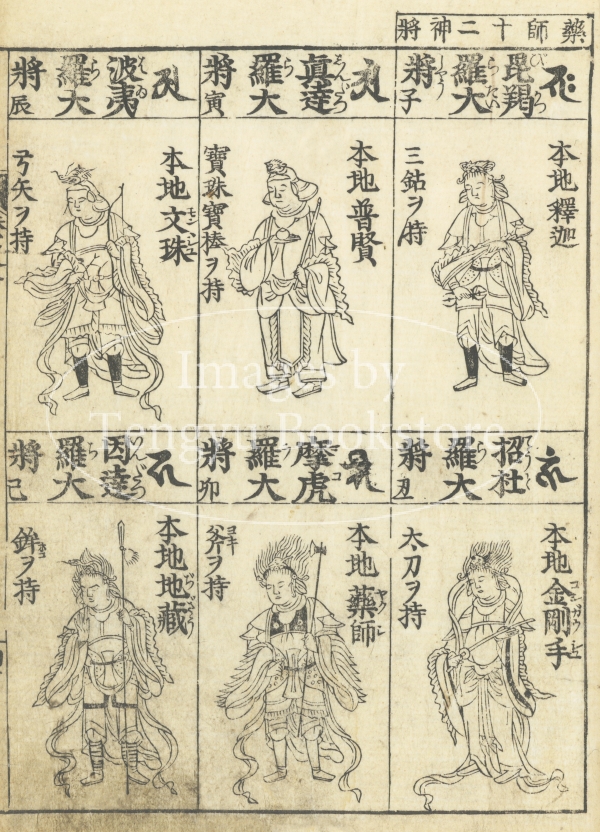 藥師十二神將
毘羯
羅大
將子
本地釋迦
三鈷ヲ持
招杜
羅大
將丑
本地金剛手
太刀ヲ持
真達
羅大
將寅
本地普賢
寶珠寶棒ヲ持
摩虎
羅大
將卯
本地藥師
斧ヲ持
波夷
羅大
將辰
本地文珠
弓矢ヲ持
因達
羅大
將巳
本地地藏
鉾ヲ持
Images by
Tengyu Bookstore